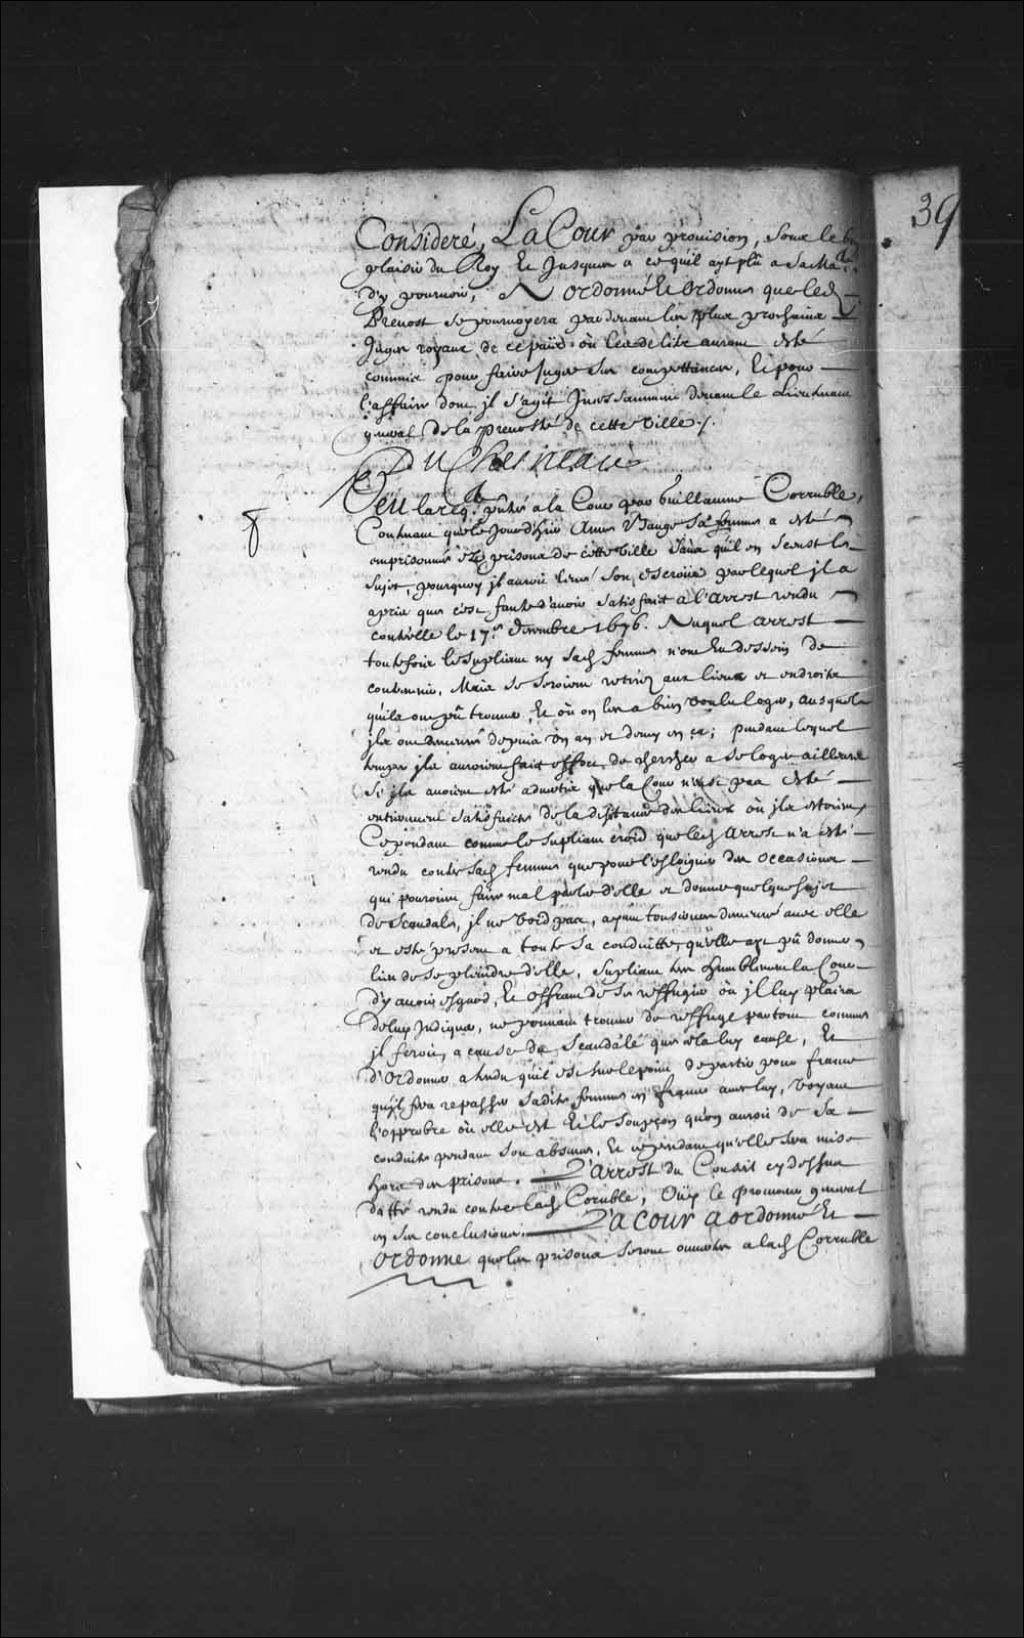 39
Consideré, La Cour par prouision, soux le bon
plaisir du Roy Et Jusques a ce qu'il ayt plû a Sa Ma.té
d'y pouruoir, a Ordonné Et Ordonne que led.
Preuost se pouruoyera pardeuant les plus prochains
Juges royaux de ce païs où les delits auront esté
commis pour faire juger sa compettance, Et pour
l'affaire dont il s'agit Incessamment deuant le Lieutenant
gñeral de la preuosté de cette ville ./.
DuChesneau
8
Veu la req.te pñtée a la Cour par Guillaume Corruble,
Contenant que ce Jourd'huy Anne Baugé sa femme a esté
emprisonnée ez prisons de cette ville sans qu'il en sceust le
sujet, pourquoy il auroit leué son escroüe par lequel il a
apris que c'est faute d'auoir satisfait a l'arrest rendu
contr'elle le 17.e decembre 1676. Auquel arrest
toutefois le supliant ny sad. femme n'ont eu dessein de
contreuenir, Mais se seroient retirez aux lieux et endroits
qu'ils ont pû trouuer, Et où on les a bien voulu loger, ausquels
ils ont demeuré depuis vn an et demy en ça; pendant lequel
temps ils auroient fait effort de chercher a se loger ailleurs
Si ils auoient esté aduertis que la Cour n'eust pas esté
entierement satisfaicte de la distance des lieux où ils estoient,
Cependant comme le supliant croid que led. Arrest n'a esté
rendu contre sad. femme que pour l'esloigner des occasions
qui pouroient faire mal parler d'elle et donner quelque sujet
de scandale, il ne void pas, ayant tousiours demeuré auec elle
et esté présent a toute sa conduitte, qu'elle ayt pû donner
lieu de se pleindre d'elle, Supliant tres humblement la Cour
d'y auoir esgard, Et offrant de se reffugier où il luy plaira
de luy Indiquer, ne pouuant trouuer de reffuge partout comme
il feroit, a cause du Scandale que cela luy cause, Et
d'Ordonner attendu qu'il est sur le point de partir pour france
qu'il fera repasser sadite femme en france auec luy, voyant
l'opprobre où elle est Et le soupçon qu'on auroit de sa
conduite pendant son absence, Et cependant qu'elle sera mise
hors des prisons. L'arrest du Conseil cy dessus
datté rendu contre lad. Coruble, Oüy le procureur general
en ses conclusions. La Cour a ordonné Et
ordonne que les prisons seront ouuertes a lad. Corruble